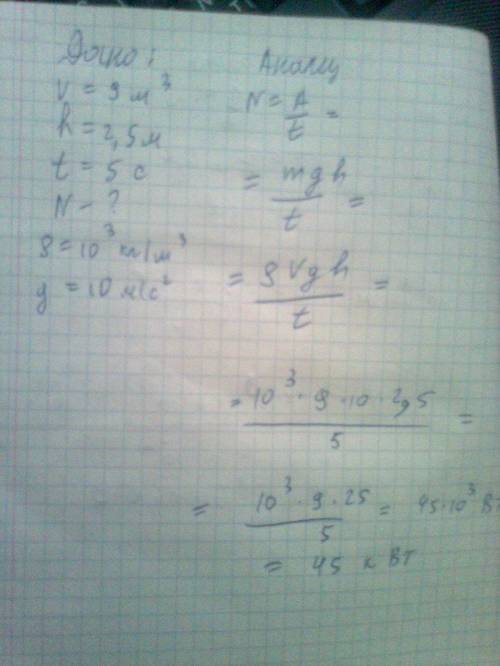 Дано:
V = 9 м³
h = 2,5 м
t = 5 с
N - ?
ρ = 10³ кг/м³
g = 10 м/с²
Анализ
N = A/t =
= mgh/t =
= ρVgh/t =
= 10³ · 9 · 10 · 2,5 / 5 =
= 10³ · 9 · 25 / 5 = 45·10³ Вт
= 45 кВт